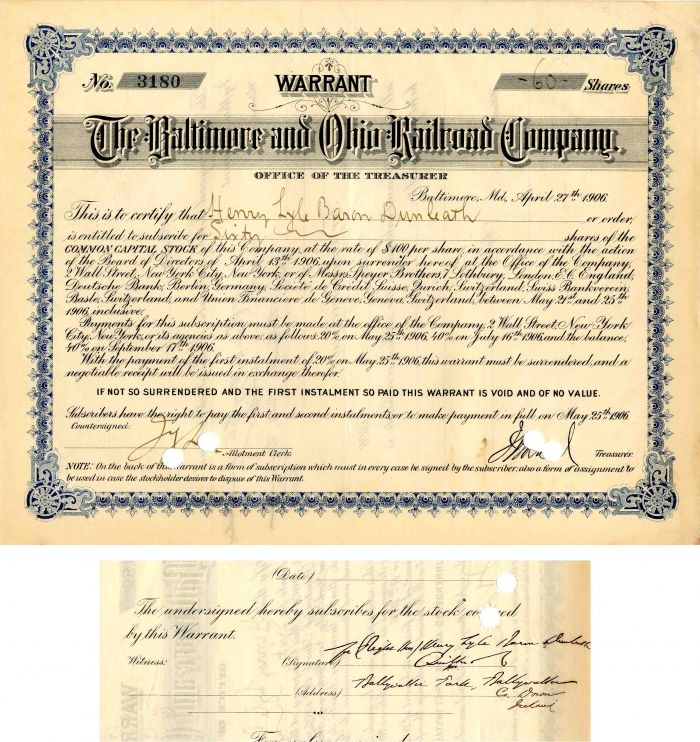 No. 3180 WARRANT -60- Shares
The Baltimore and Ohio Railroad Company.
OFFICE OF THE TREASURER
Baltimore, Md., April 27th 1906.
This is to certify that Henry Lyle Baron Dunleath or order,
is entitled to subscribe for Sixty shares of the
COMMON CAPITAL STOCK of this Company, at the rate of $100 per share, in accordance with the action
of the Board of Directors of April 13th 1906, upon surrender hereof, at the Office of the Company,
2 Wall Street, New York City, New York, or of Messrs. Speyer Brothers, 7 Lothbury, London, E.C. England,
Deutsche Bank, Berlin, Germany, Societe de Credit Suisse, Zurich, Switzerland, Swiss Bankverein,
Basle, Switzerland, and Union Financiere de Geneve, Geneva, Switzerland, between May 21st and 25th
1906, inclusive.
Payments for this subscription must be made at the office of the Company, 2 Wall Street, New York
City, New York, or its agencies as above, as follows: 20% on May 25th 1906, 40% on July 16th 1906, and the balance,
40% on September 17th 1906.
With the payment of the first instalment of 20% on May 25th 1906, this warrant must be surrendered, and a
negotiable receipt will be issued in exchange therefor.
IF NOT SO SURRENDERED AND THE FIRST INSTALMENT SO PAID THIS WARRANT IS VOID AND OF NO VALUE.
Subscribers have the right to pay the first and second instalments, or to make payment in full on May 25th 1906.
Countersigned:
Allotment Clerk. Treasurer.
NOTE: On the back of this warrant is a form of subscription which must in every case be signed by the subscriber; also a form of assignment to
be used in case the stockholder desires to dispose of this Warrant.
(Date)
The undersigned hereby subscribes for the stock covered
by this Warrant.
Witness: (Signature) (Right Hon) Henry Lyle Baron Dunleath
(Address) Ballywalter Park, Ballywalter
Co. Down
Ireland